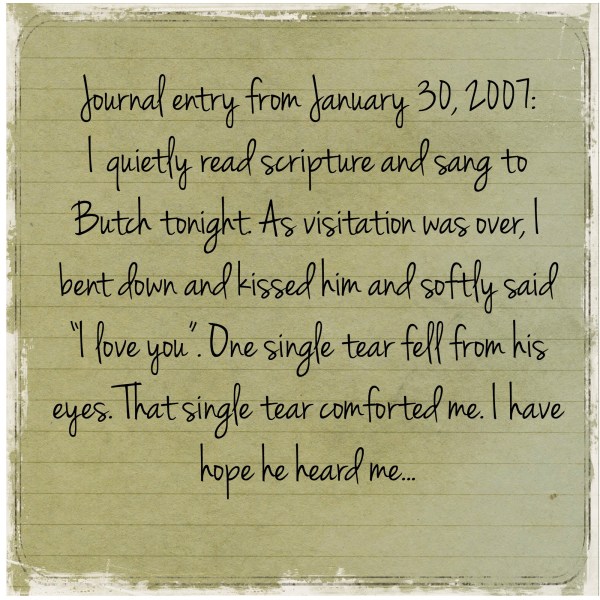 Journal entry from January 30, 2007:
I quietly read scripture and sang to
Butch tonight. As visitation was over, I
bent down and kissed him and softly said
"I love you". One single tear fell from his
eyes. That single tear comforted me. I have
hope he heard me...